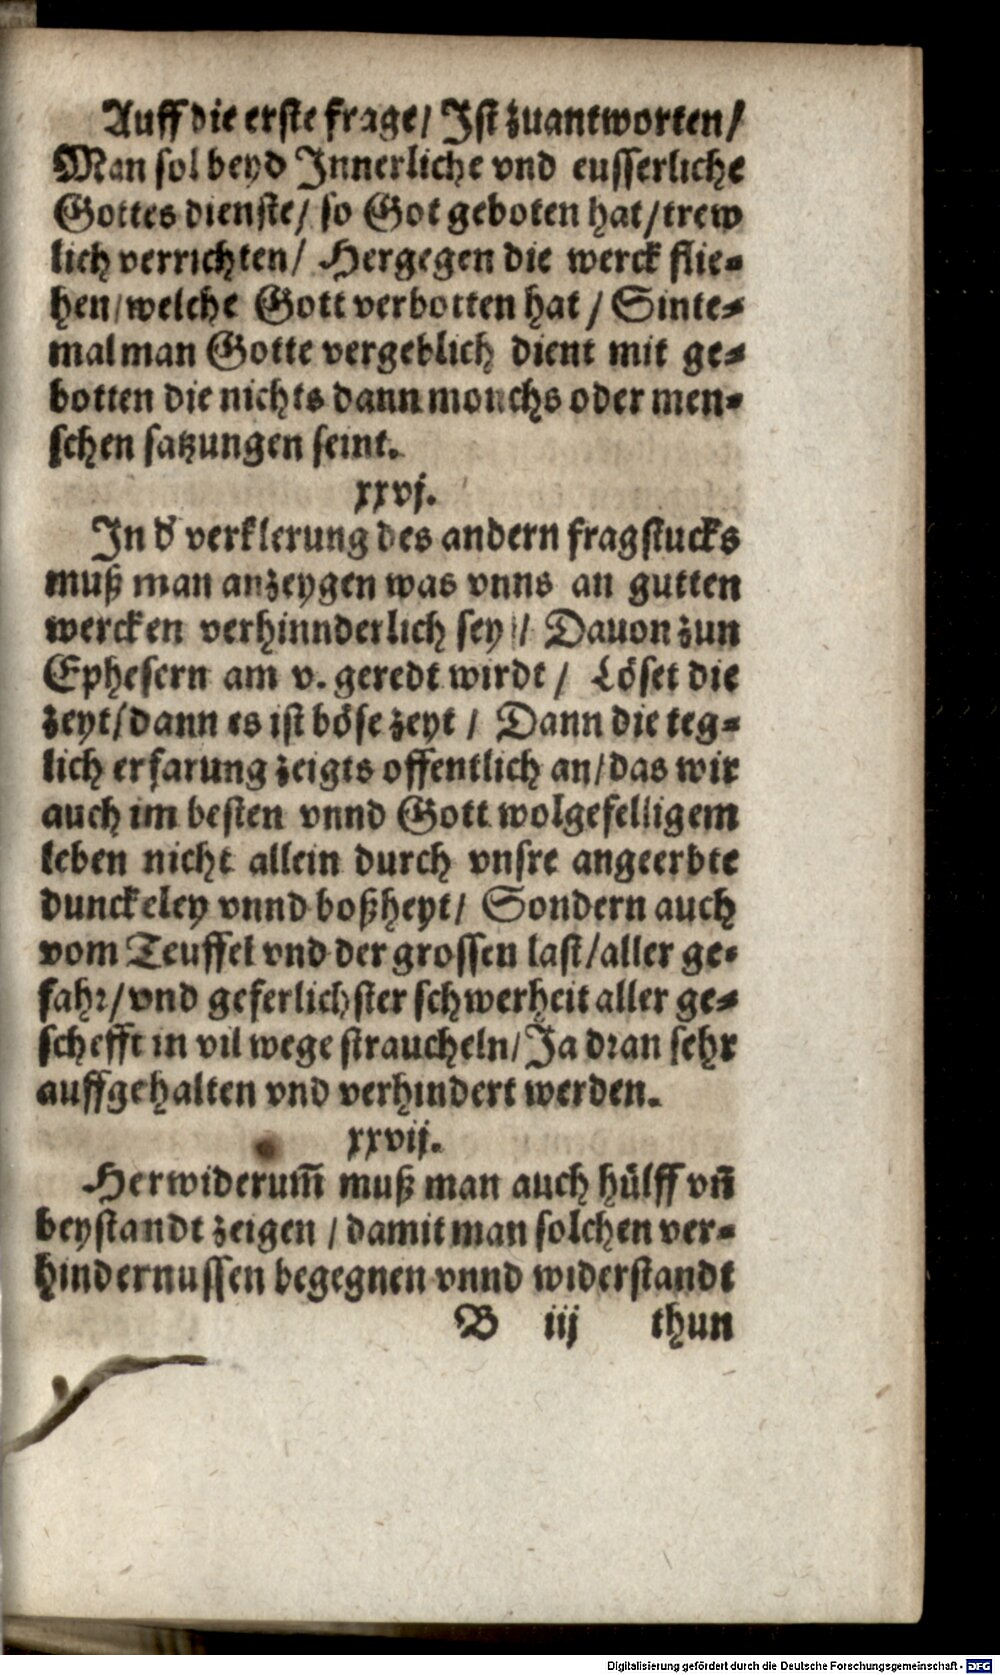 Auff die erste frage/ Ist zuantworten/
Man sol beyd Innerliche vnd eusserliche
Gottes dienste/ so Got geboten hat/trew
lich verrichten/ Hergegen die werck flie-
hen/welche Gott verbotten hat / Sinte-
mal man Gotte vergeblich dient mit ge-
botten die nichts dann monchs oder men-
schen satzungen seint.
xxvj.
In d' verklerung des andern fragstucks
muß man anzeygen was vnns an gutten
wercken verhinnderlich sey // Dauon zun
Ephesern am v. geredt wirdt / Löset die
zeyt/dann es ist böse zeyt / Dann die teg-
lich erfarung zeigts offentlich an/das wir
auch im besten vnnd Gott wolgefelligem
leben nicht allein durch vnsre angeerbte
dunckeley vnnd boßheyt/ Sondern auch
vom Teuffel vnd der grossen last/aller ge-
fahr/vnd geferlichster schwerheit aller ge-
schefft in vil wege straucheln/Ja dran sehr
auffgehalten vnd verhindert werden.
xxvij.
Herwiderum̃ muß man auch hülff vñ
beystandt zeigen / damit man solchen ver-
hindernussen begegnen vnnd widerstandt
B iij thun
Digitalisierung gefördert durch die Deutsche Forschungsgemeinschaft - DFG